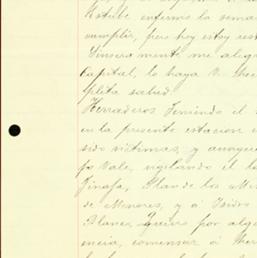 Estube enfermo la sema
cumplir, pero hoy estoy res
Sinceramente me aleg
Capital, lo haya V. hec
pleta salud.
Herraderos Teniendo el
en la presente estacion e
sido victimas, y aunque
po Vale, vigilando el l
Tinaja, Plan de los Me
de Menores, y á Isidro
Blanes, quiero por alg
encia, comensar á Her